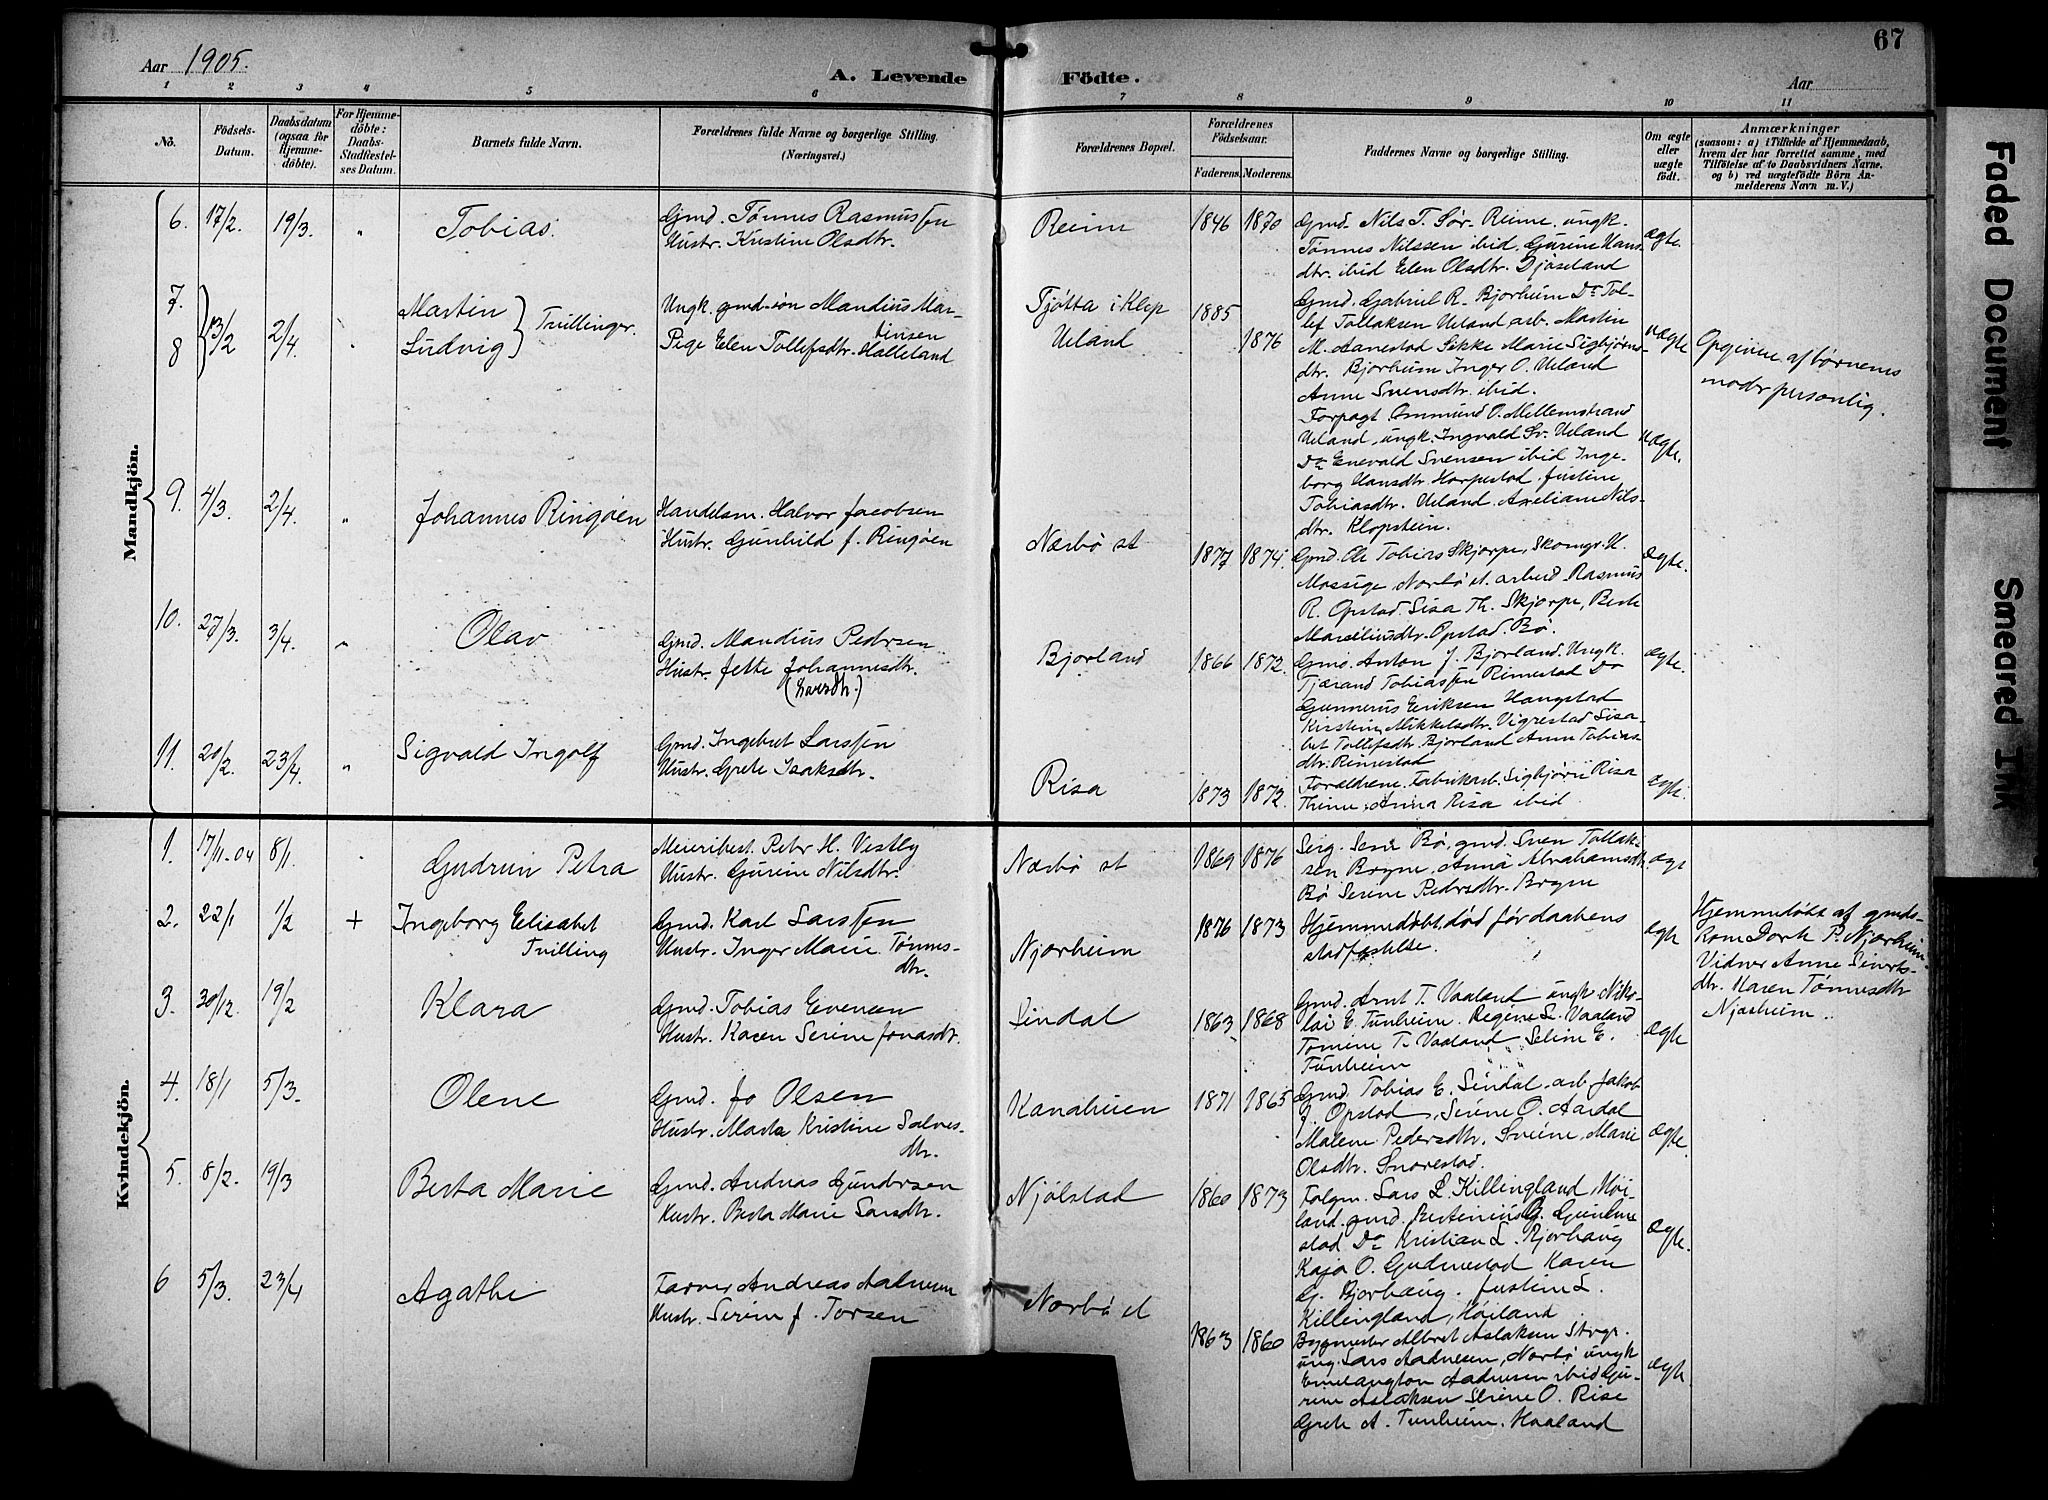 Aar 1905.
A. Levende Födte.
Aar
67
1 2 3 4 5 6 7 8 9 10 11
No.
Födsels-Datum.
Daabsdatum (ogsaa for Hjemmedöbte).
For Hjemmedöbte: Daabs-Stadfæstelses Datum.
Barnets fulde Navn.
Forældrenes fulde Navne og borgerlige Stilling.
(Næringsvei.)
Forældrenes Bopæl.
Forældrenes Födselsaar.
Faderens. Moderens.
Faddernes Navne og borgerlige Stilling.
Om ægte eller uægte födt.
Anmærkninger
(saasom: a) i Tilfælde af Hjemmedaab, hvem der har forrettet samme, med Tilföielse af to Daabsvidners Navne, og b) ved uægtefödte Börn Anmelderens Navn m. V.)
Mandkjön.
6. 17/2. 19/3. " Tobias.
Gmd. Tønnes Rasmussen
Hustr. Kristine Olsdtr.
Reim 1846 1870
Gmd. Nils T. Sør-Reime, ungk.
Tønnes Nilssen ibid, Gurine Hans-
dtr. ibid Elen Olsdtr. Djøseland
ægte.
7.
8
13/2 2/4. "
Martin
Ludvig
Tvillinger.
Ungk. gmd-søn Mandius Mar-
tinsen
Pige Elen Tollefsdtr. Halleland
Tjøtta i Klep 1885
Ueland 1876
Gmd. Gabriel R. Bjorheim Do Tol-
lef Tollaksen Ueland, arb. Martin
M. Aanestad Sikke Marie Sigbjørns-
dtr. Bjorheim Inger O. Ueland
Anne Svensdtr. ibid.
uægte
Opgivne af børnenes
moder personlig.
Forpagt Ommund O. Mellemstrand
Ueland, ungk. Ingvald Sv. Ueland
Do Enevald Svensen ibid Inge-
borg Hansdtr. Horpestad, Justine
Tobiasdtr. Ueland. Axeliane Nils-
dtr. Klopstein.
uægte.
9. 4/3. 2/4. " Johannes Ringøen
Handelsm. Halvor Jacobsen
Hustr. Gunhild f. Ringøen
Nærbø st 1877 1874.
Gmd. Ole Tobias Skjorpe, Skomgr. H.
Mossige, Nærbø st. arbeid. Rasmus
R. Opstad. Lisa Th. Skjorpe, Berte
Marseliusdtr. Opstad. Bø.
ægte.
10. 27/3. 3/4. " Olav
Gmd. Mandius Pedersen
Hustr. Jette Johannesdtr.
(Larsdtr.)
Bjorland 1866 1872.
Gmd. Anton J. Bjorland. Ungk.
Tjærand Tobiassen Rimestad Do
Gunnerus Eriksen Haugstad
Kirstine Mikkelsdtr. Vigrestad Lisa-
bet Tollefsdtr. Bjorland Anne Tobias-
dtr. Rimestad
ægte.
11. 20/2. 23/4. " Sigvald Ingolf
Gmd. Ingebret Larssen
Hustr. Grete Isaksdtr.
Risa 1873 1872.
Forældrene. Fabrikarb. Sigbjørn Risa
Thime, Anna Risa ibid
ægte.
Kvindekjön.
1. 17/11-04 8/1. Gudrun Petra
Meieribest. Peter H. Vestly
Hustr. Gurine Nilsdtr.
Nærbø st 1869 1876
Bø, gmd. Sven Tollak-
sen Bryne, Anna Abrahamsdtr.
Bø Serine Pedersdtr. Bryne
ægt
2. 22/1 1/2 + Ingeborg Elisabet
Tvilling
Gmd. Karl Larssen
Hustr. Inger Marie Tønnes-
dtr.
Njærheim 1876 1873
Hjemmedøbt død før daabens
stadfæstelse.
ægte
Hjemmedøbt af gmds-
kone Dorte P. Njærheim
Vidner Anne Siverts-
dtr. Karen Tønnesdtr
Njærheim.
3. 30/12. 19/2 Klara
Gmd. Tobias Evensen
Hustr. Karen Serine Jonasdtr.
Lindal 1863 1868
Gmd. Arnt T. Vaaland ungk. Niko-
lai E. Tunheim. Regine L. Vaaland
Tomine T. Vaaland Seline E.
Tunheim
ægte
4. 18/1 5/3. Olene
Gmd. Jo Olsen
Hustr. Marta Kristine Salves-
dtr.
Kanaheien 1871 1865
Gmd. Tobias E. Lindal, arb. Jakob
J. Opstad, Serine O. Aardal
Malene Pedersdtr. Marie
Olsdtr. Snorestad.
ægte.
5. 8/2. 19/3 Berta Marie
Gmd. Andreas Gundersen
Hustr. Berta Marie Larsdtr.
Njølstad 1860 1873
Folgm. Lars L. Killingland, Høi-
land. gmd. G. Gudme-
stad Do Kristian L. Bjorhaug
Kaja O. Gudmestad Karen
G. Bjorhaug. Justine L.
Killingland, Høiland
ægte.
6 5/3. 23/4 Agathe
Farver Andreas Aadnesen
Hustr. Serine f. Torsen
Nærbø st 1863 1860
Bygmester Albret Aslaksen Stvgr.
ung. Lars Aadnesen, Nærbø ungk
Aadnesen ibid Gu-
rine Aslaksen Serine O. Rise
Grete A. Tunheim. Haaland
ægte.
Faded Document
Smeared Ink